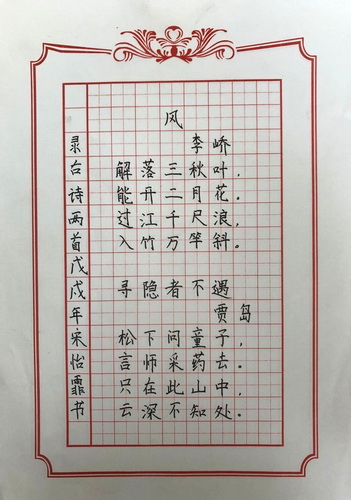 风
李峤
解落三秋叶，
能开二月花。
过江千尺浪，
入竹万竿斜。
寻隐者不遇
贾岛
松下问童子，
言师采药去。
只在此山中，
云深不知处。
录古诗两首戊戌年宋怡霏书